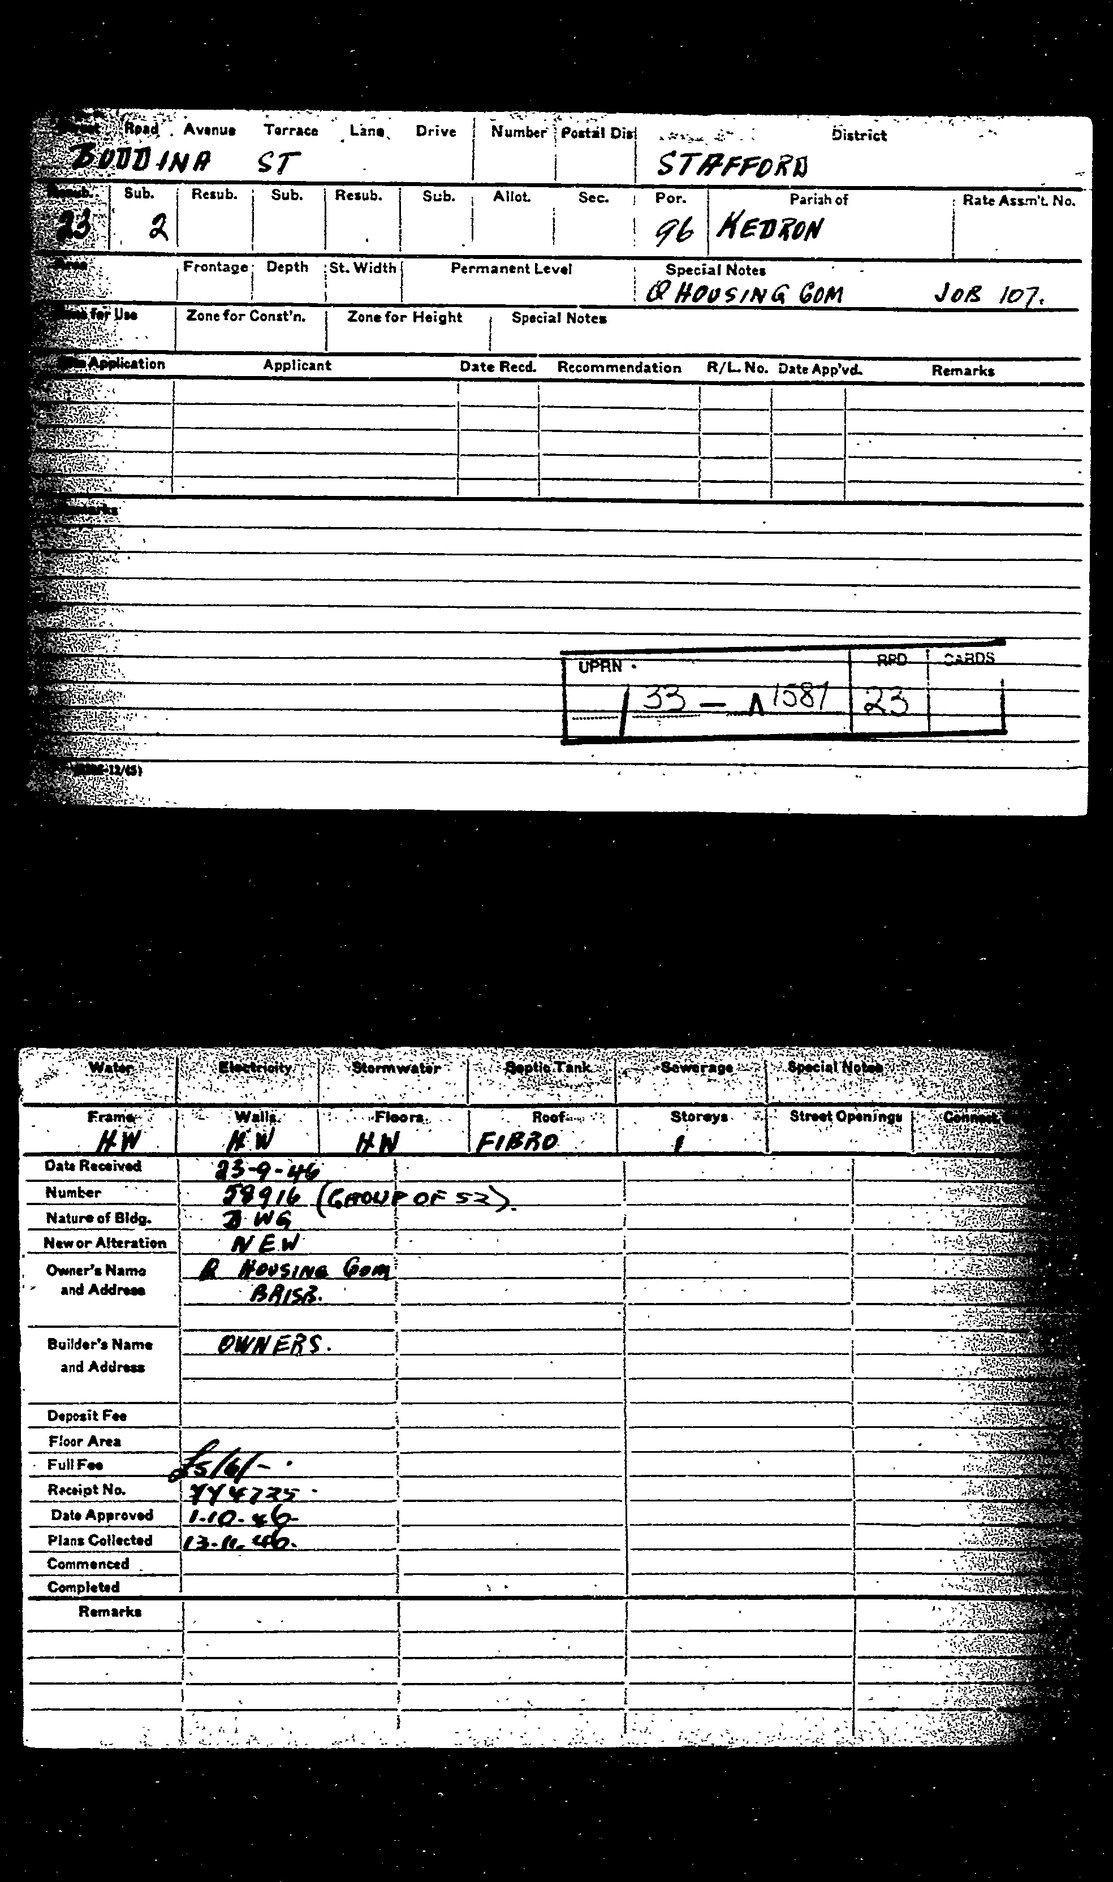 Street Road Avenue Terrace Lane Drive Number Postal Dis District
BUDDINA ST STAFFORD
Resub. Sub. Resub. Sub. Resub. Sub. Allot. Sec. Por. Parish of Rate Assm't. No.
23 2 96 KEDRON
Area Frontage Depth St. Width Permanent Level Special Notes
Q HOUSING COM JOB 107.
Zone for Use Zone for Const'n. Zone for Height Special Notes
Application Applicant Date Recd. Recommendation R/L. No. Date App'vd. Remarks
Remarks
UPRN RPD CARDS
/ 33 — 1587 23
12/65)
Water Electricity Stormwater Septic Tank Sewerage Special Notes
Frame Walls Floors Roof Storeys Street Openings Connect
H.W H.W H.W FIBRO 1
Date Received 23-9-46
Number 58916 (GROUP OF 52).
Nature of Bldg. DWG
New or Alteration NEW
Owner's Name Q HOUSING COM
and Address BRISB.
Builder's Name OWNERS.
and Address
Deposit Fee
Floor Area
Full Fee £5/6/-
Receipt No. 744725
Date Approved 1-10-46
Plans Collected 13-11-46.
Commenced
Completed
Remarks